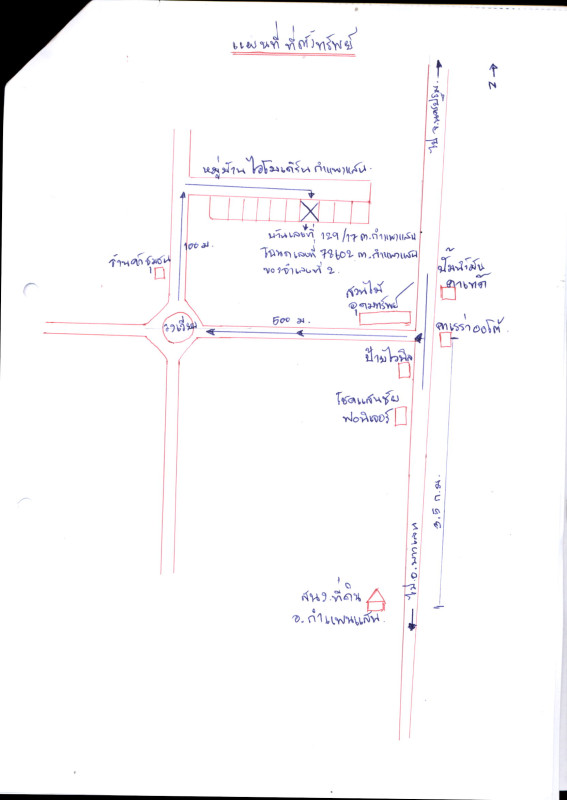 แผนที่ ที่ตั้งทรัพย์
N
ไป จ.นครปฐม
หมู่บ้าน ไอโมเดิร์น กำแพงแสน
บ้านเลขที่ 129/17 ต.กำแพงแสน
โฉนดเลขที่ 78602 ต.กำแพงแสน
ของจำเลยที่ 2.
100 ม.
ร้านค้าชุมชน
ปั๊มน้ำมัน
คาเท็ค
สวนไม้
อุดมทรัพย์
วงเวียน
500 ม.
คาร์ร่าออโต้
ป้ายไวนิล
โชคแสนชัย
เฟอนิเจอร์
ไป อ.
ก.ม.
สนง.ที่ดิน
อ.กำแพงแสน